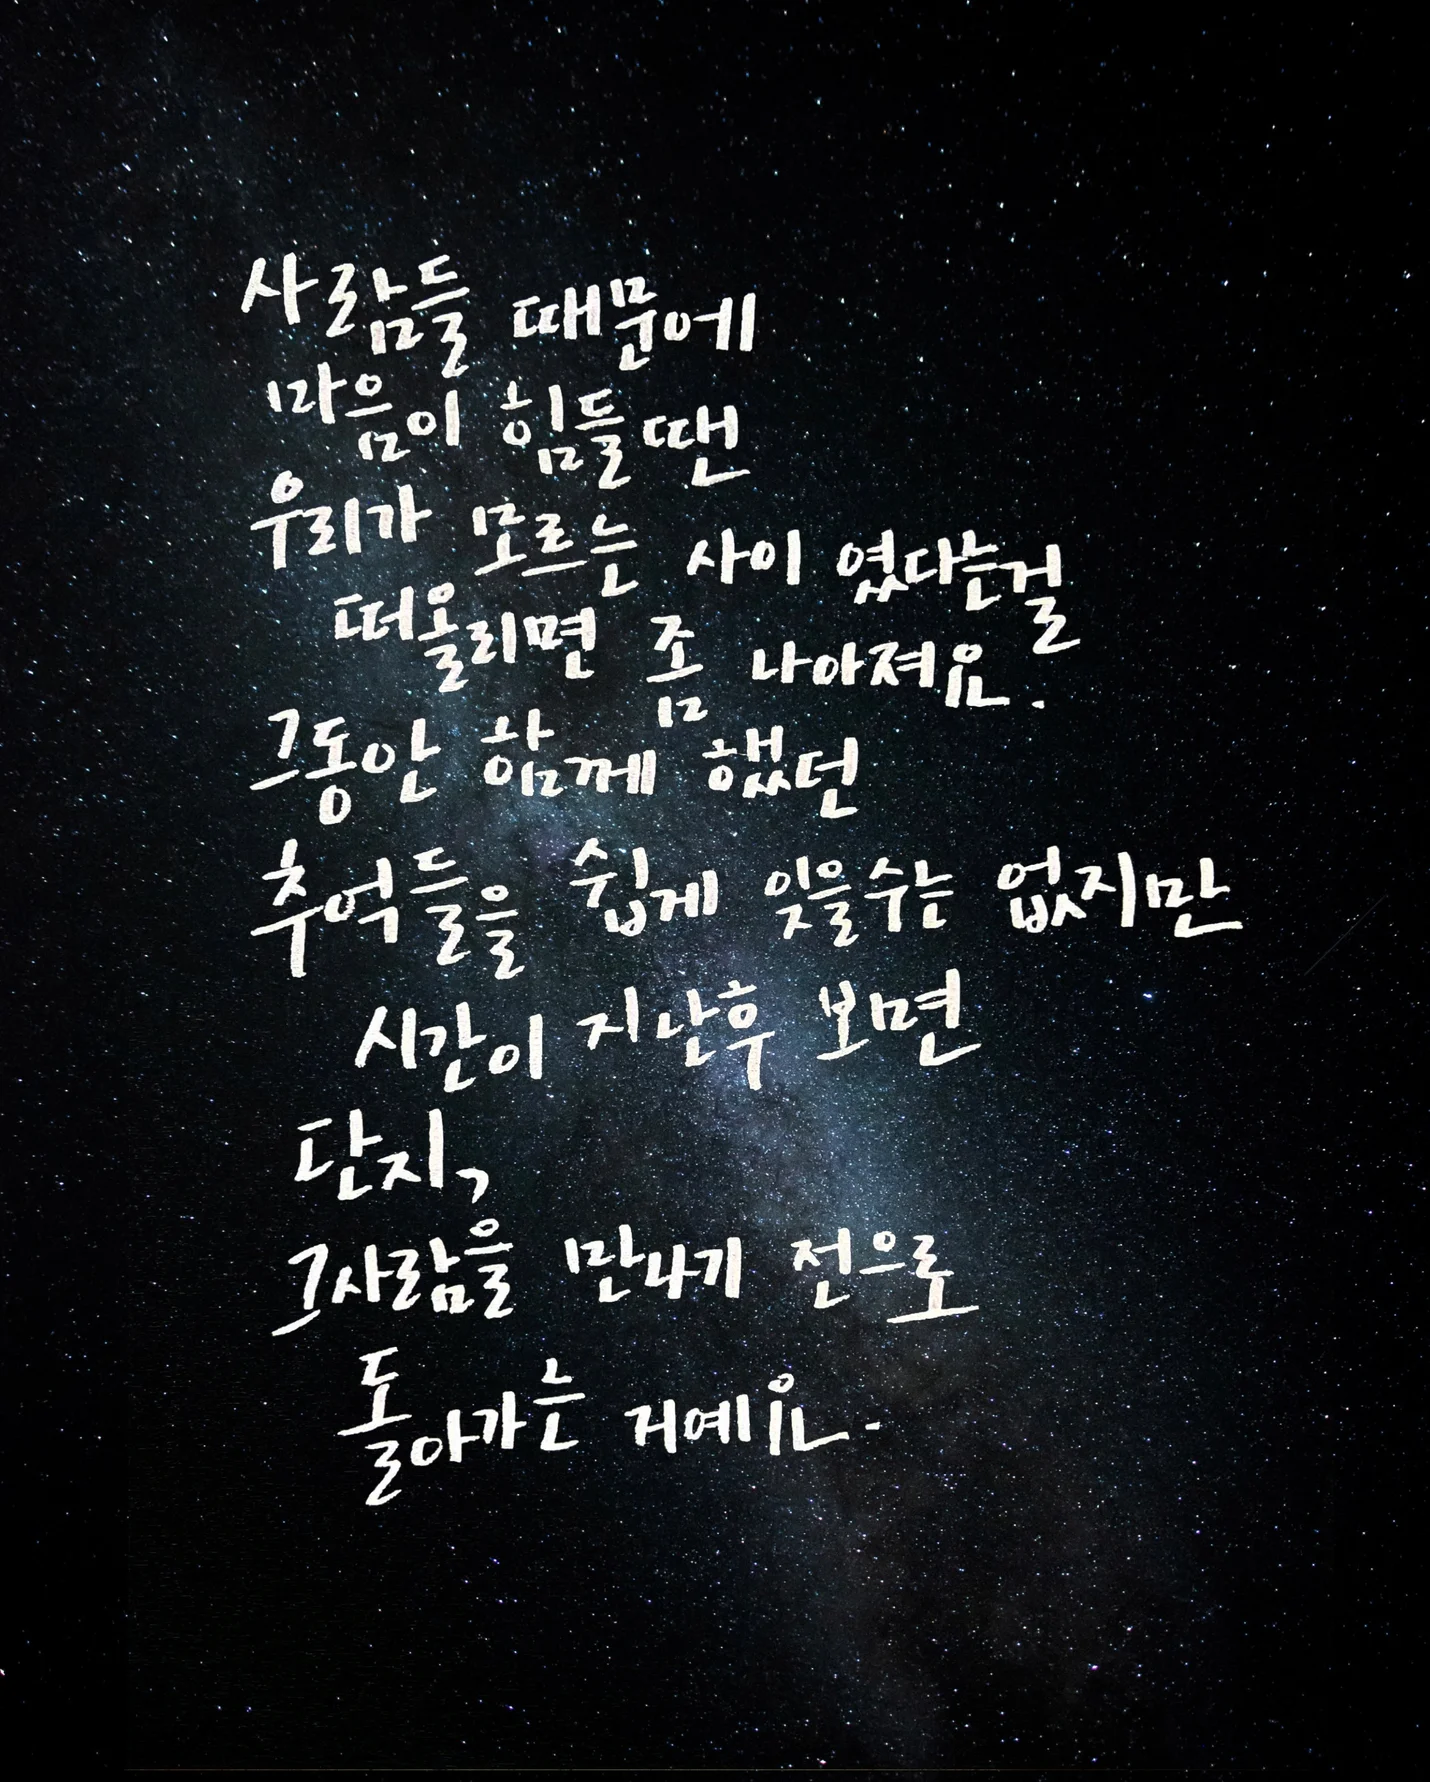 사람들 때문에
마음이 힘들땐
우리가 모르는 사이 였다는걸
떠올리면 좀 나아져요.
그동안 함께 했던
추억들을 쉽게 잊을수는 없지만
시간이 지난후 보면
단지,
그사람을 만나기 전으로
돌아가는 거예요.